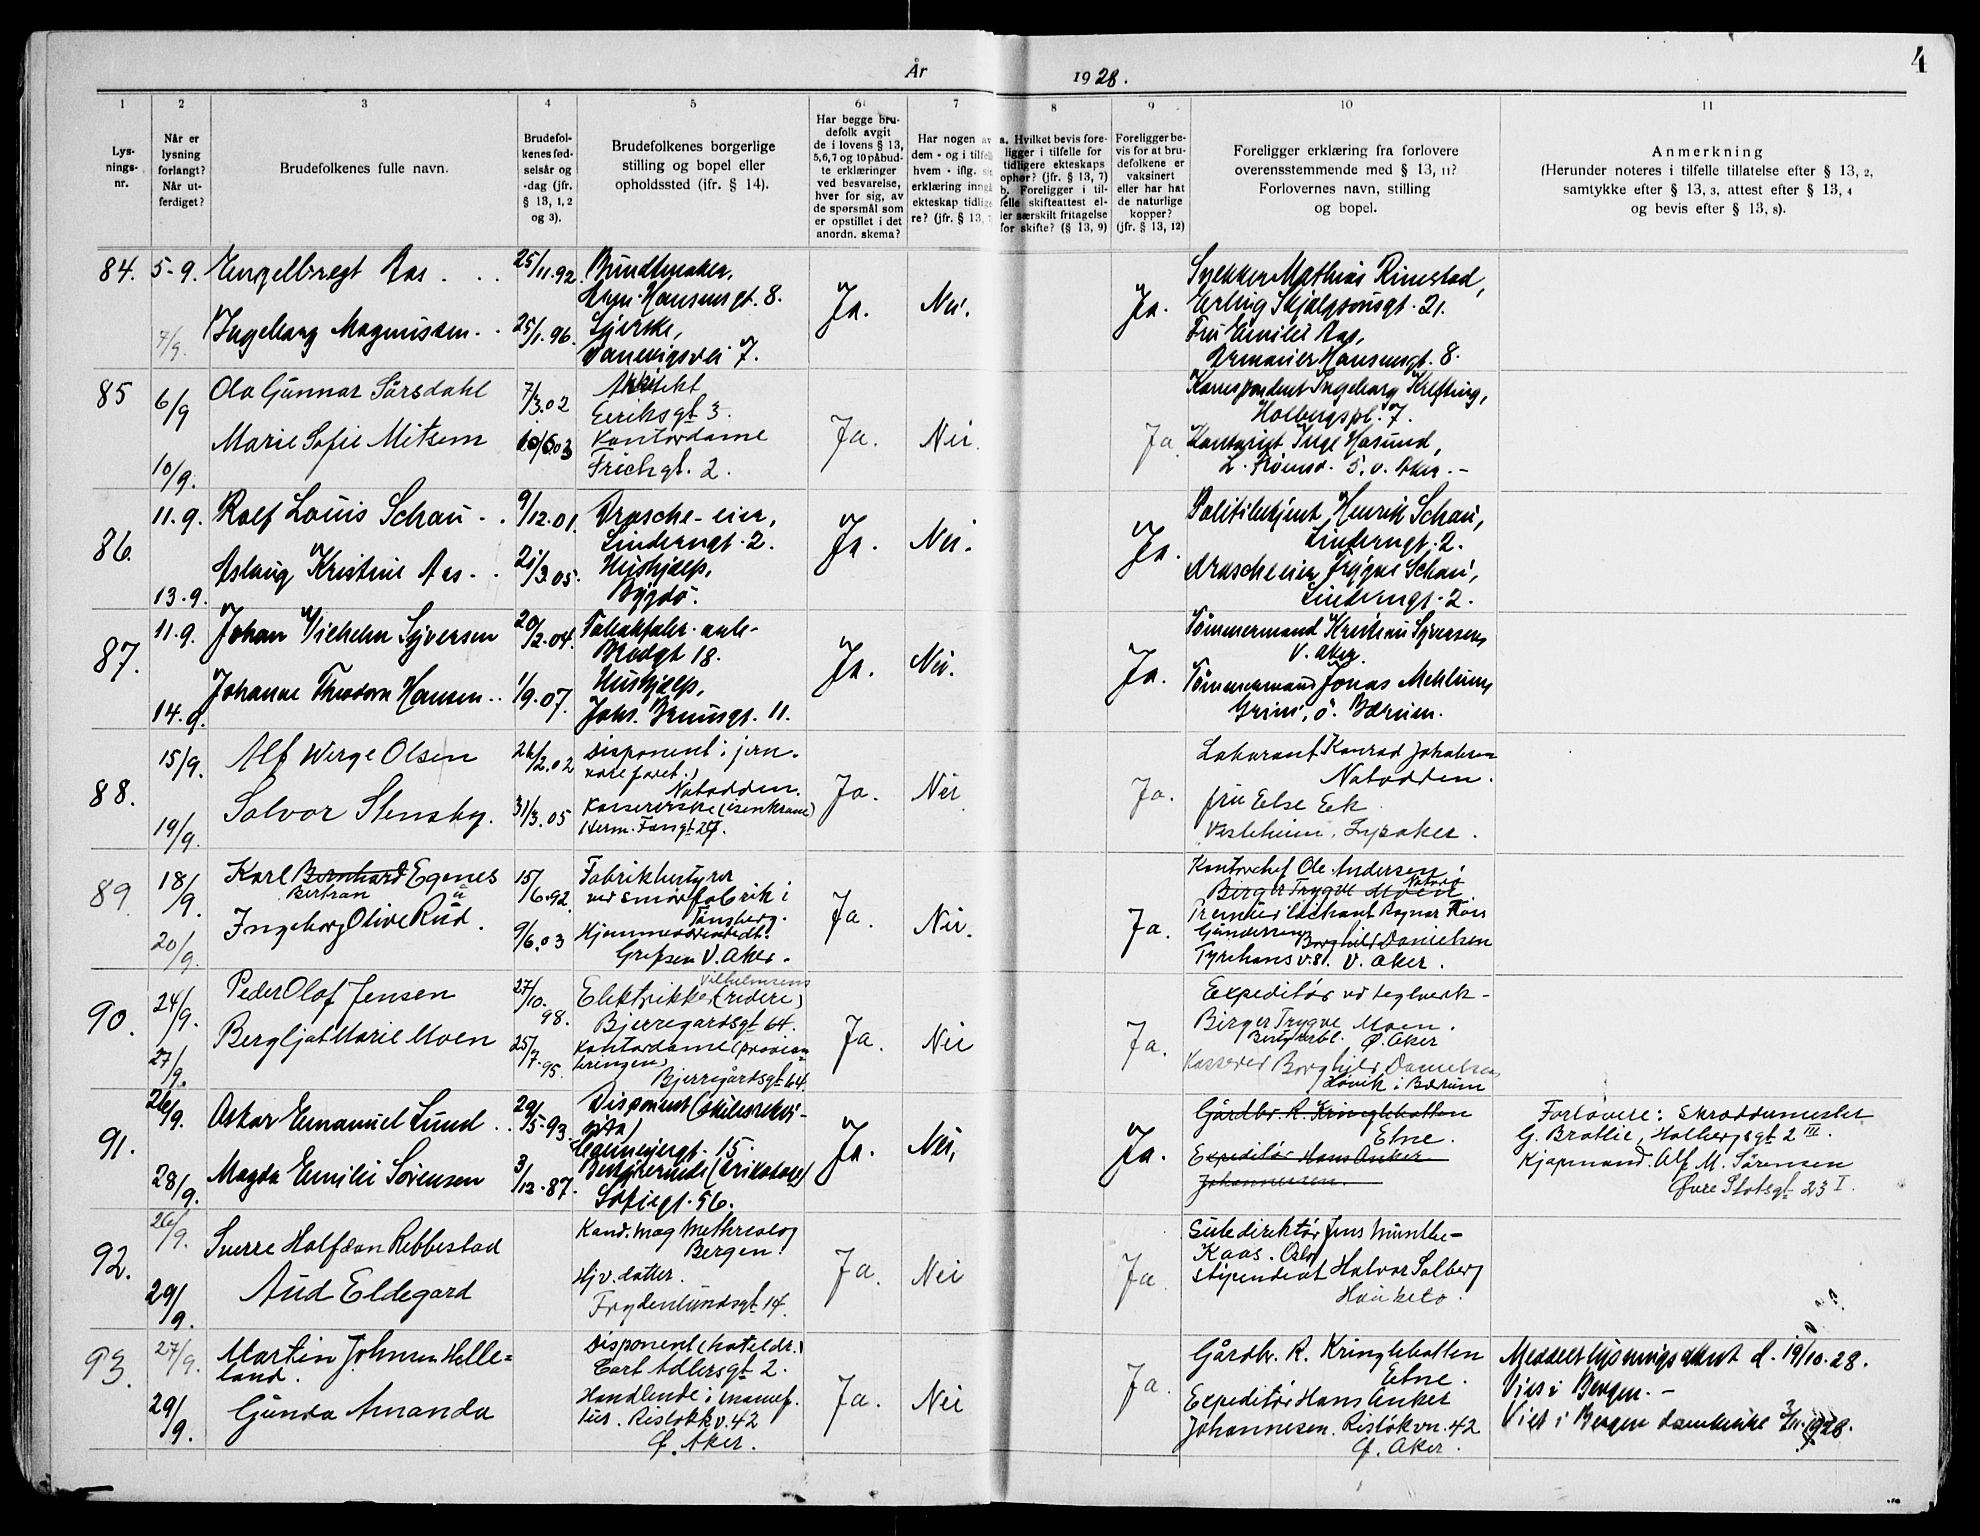 4
År 1928.
1
2
3
4
5
6
7
8
9
10
11
Lys-
nings-
nr.
Når er
lysning
forlangt?
Når ut-
ferdiget?
Brudefolkenes fulle navn.
Brudefol-
kenes fød-
selsår og
-dag (jfr.
§ 13, 1, 2
og 3).
Brudefolkenes borgerlige
stilling og bopel eller
opholdssted (ifr. § 14).
Har begge bru-
defolk avgit
de i lovens § 13,
5,6,7 og 10 påbud-
te erklæringer
ved besvarelse,
hver for sig, av
de spørsmål som
er opstillet i det
anordn. skema?
Har nogen av
dem - og i tilfelle
hvem - iflg.
erklæring inngå
ekteskap tidlige
re? (jfr. § 13,
a. Hvilket bevis fore-
ligger i tilfelle for
tidligere ekteskaps
ophør? (jfr. § 13, 7)
b. Foreligger i til-
felle skifteattest el-
ler særskilt fritagelse
for skifte? (§ 13, 9)
Foreligger be-
vis for at bru-
defolkene er
vaksinert
eller har hat
de naturlige
kopper?
(jfr. § 13, 12)
Foreligger erklæring fra forlovere
overensstemmende med § 13, 11?
Forlovernes navn, stilling
og bopel.
Anmerkning
(Herunder noteres i tilfelle tillatelse efter § 13, 2,
samtykke efter § 13, 3, attest efter § 13, 4
og bevis efter § 13, 8).
84. 5-9. Engelbregt Aas . . 25/11.92.
Hansensgt. 8.
Ja. Nei. Ja.
Snekker Mathias Rimestad,
Erling Skjalgsønsgt. 21.
7/9. Ingeborg Magnussen. . 25/1.96.
Syerske,
Danevigsvei 7.
Fru Emilie Aas,
Armauer Hansensgt. 8.
85 6/9 Ola Gunnar Sørsdahl 7/3.02
Arkitekt
Eiriksgt 3.
Ja. Nei. Ja
Korrespondent Ingeborg Krefting,
Holbergspl. 7.
10/9. Marie Sofie Mitsem
Kontordame
Frichgt. 2.
Kontorist Inge Hasund,
86. 11.9. Rolf Louis Schau . . 9/12.01.
Drosche-eier,
Linderngt. 2.
Ja. Nei. Ja.
Politibetjent Henrik Schau,
Linderngt. 2.
13.9. Aslaug Kristine Aas . . 21/3.05.
Hushjelp,
Bygdø.
Droscheeier Trygve Schau,
Linderngt. 2.
87. 11.9. Johan Vilhelm Syversen 20/2.04.
Bredgt 18.
Ja. Nei. Ja.
Tömmermand Kristian Syversen,
V. Aker.
14.9. Johanne Theodora Hansen . . 1/9.07.
Hushjælp,
Johs. Brunsgt. 11.
Tömmermand Jonas Mehlum,
Grini, ö. Bærum.
88. 15/9. Alf Werge Olsen 26/2.02
Disponent i jern-
vareforet.,
Notodden.
Ja. Nei Ja.
Laborant Konrad Johansen
Notodden.
19/9. Solvor Stensby. 31/3.05
Kassererske (isenkram)
Herm. Fossgt 27.
fru Else Eek
Vesleheim, Lysaker.
89. 18/9. Karl Bernhard Egenes 15/6.92
Bertran
Fabrikbestyrer
ved smørfabrik i
Tønsberg.
Ja Nei. Ja.
Kontorchef Ole Andersen,
Birger Trygve Moen
20/9. Ingeborg Olive Rud. 9/6.03
Hjemmeværende dt.
Grefsen V. Aker.
Premierløitnant Ragnar
Gundersen Borghild Danielsen
Tyrihans v.8. V. Aker.
90. 24/9. Peder Olaf Jensen 27/10.98.
Vilhelmsens
Elektriker (rederi)
Bjerregårdsgt 64.
Ja. Nei Ja.
Expeditør vd teglverk-
Birger Trygve Moen.
Ø. Aker
27/9. Bergljot Marie Moen 25/7.95.
Kontordame (provian-
teringen)
Bjerregårdsgt 64.
Kasserer Borghild Danielsen
Høvik i Bærum
91. 26/9. Oskar Emanuel Lund . . 29/5-93.
15.
Ja. Nei, Ja.
Gårdbr. R. Kringlebotten
Etne.
Forlovere: Skræddermester
G. Bratlie, Holbergsgt 2 III.
28/9. Magda Emilie Sørensen 3/12.87.
Sofiegt. 56.
Expeditør Hans Anker
Johannesen.
Kjøpmand Alf M. Sørensen
Øvre Slotsgt 23 I.
92. 26/9. Sverre Halfdan Rebbestad
Kand. mag
Bergen.
Ja. Nei Ja
Kaas. Oslo
29/9. Aud Eldegard
Hjv. datter.
Frydenlundsgt 14.
Stipendiat Halvor Solberg
Hauketo.
93. 27/9. Martin Johnsen Helle=
land.
Disponent (hoteldr.)
Cort Adlersgt 2.
Ja. Nei Ja.
Gårdbr. R. Kringlebotten
Etne.
Meddelt lysningsattest d. 19/10.28.
Viet i Bergen.-
29/9. Gunda Amanda
Handlende i manuf.
Risløkk v. 42
Ø. Aker.
Expeditør Hans Anker
Johannesen. Risløkvn. 42
Ø. Aker.
Viet i Bergen domkirke 3/11.1928.